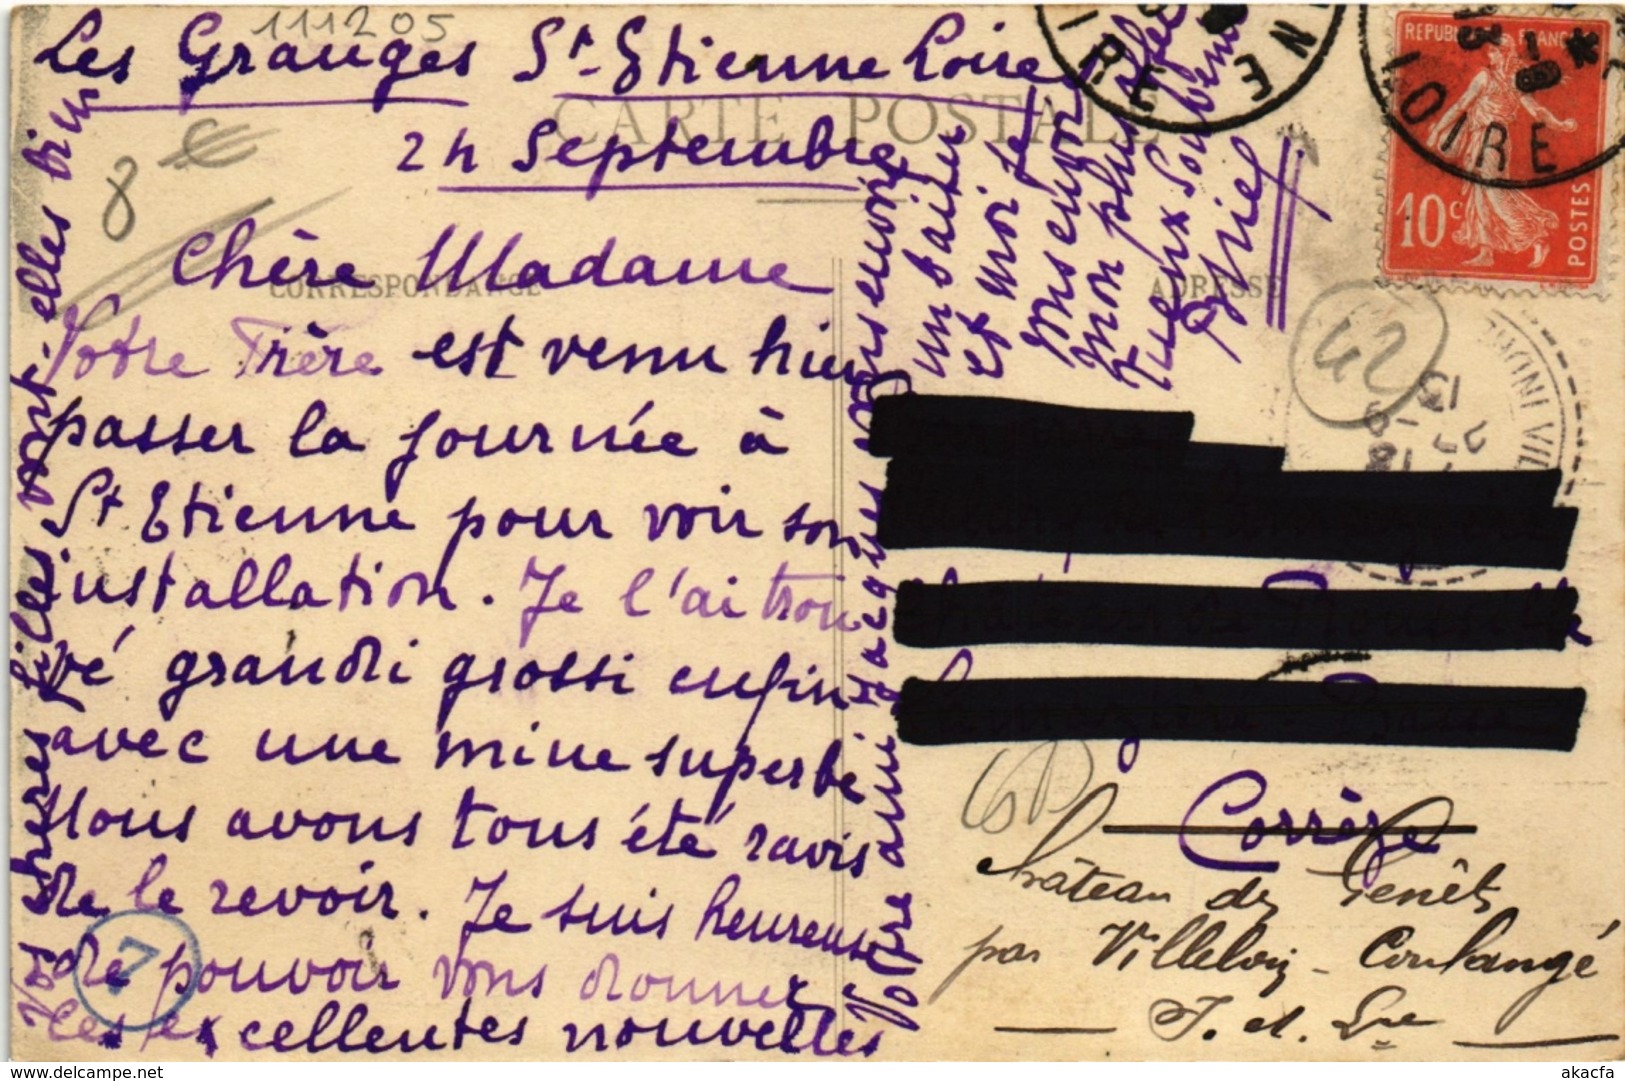 111205
Les Granges St-Etienne Loire
24 Septembre
CARTE POSTALE
8
Chère Madame
CORRESPONDANCE
ADRESSE
Votre Frère est venu hier
passer la journée à
St Etienne pour voir son
installation. Je l'ai trou
vé grandi grossi enfin
avec une mine superbe
Nous avons tous été ravis
de le revoir. Je suis heureuse
de pouvoir vous donner
ces excellentes nouvelles
Vos chères filles vont-elles bien
Votre ami Jacques vous envoie
un baiser
et moi je
vous envoie
mon plus
Souvenir
REPUBLIQUE FRANÇAISE
10c
POSTES
LOIRE
42
7
Corrèze
Château des Genêts
par Villeloin-Coulangé
I. et Lre
akacfa
delcampe.net